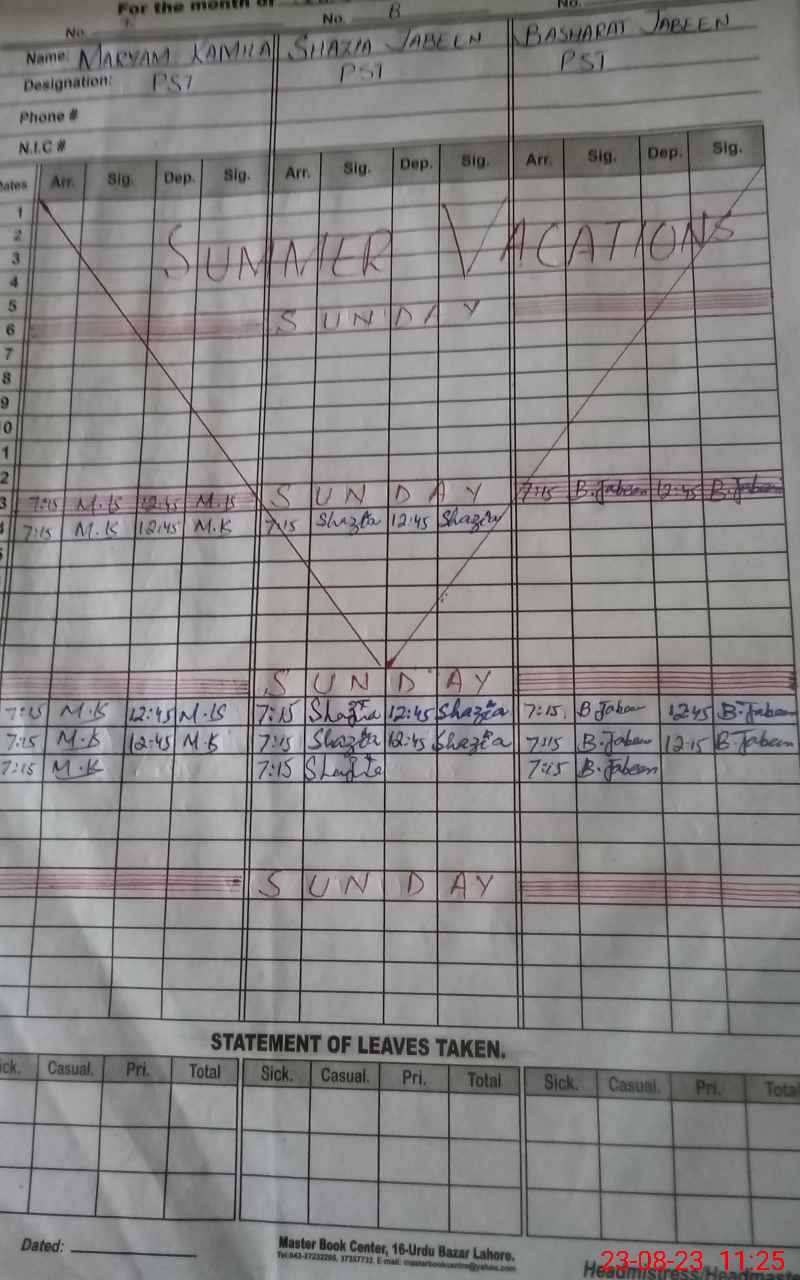 For the month of
No. No. B No.
Name: MARYAM KAMILA SHAZIA JABEEN BASHARAT JABEEN
Designation: PST PST PST
Phone #
N.I.C #
Dates Arr. Sig. Dep. Sig. Arr. Sig. Dep. Sig. Arr. Sig. Dep. Sig.
1
2
SUMMER VACATIONS
3
4
5
6 SUNDAY
7
8
9
0
1
2
3 7:15 M.K 12:45 M.K SUNDAY 7:15 B.Jabeen 12:45 B.Jabeen
4 7:15 M.K 12:45 M.K 7:15 Shazia 12:45 Shazia
SUNDAY
7:15 M.K 12:45 M.K 7:15 Shazia 12:45 Shazia 7:15 B Jabeen 12:45 B.Jabeen
7:15 M.K 12:45 M.K 7:15 Shazia 12:45 Shazia 7:15 B.Jabeen 12:15 B.Jabeen
7:15 M.K 7:15 Shazia 7:15 B.Jabeen
SUNDAY
STATEMENT OF LEAVES TAKEN.
ick. Casual. Pri. Total Sick. Casual. Pri. Total Sick. Casual. Pri. Total
Dated:
Master Book Center, 16-Urdu Bazar Lahore.
Headmistress/Headmaster
23-08-23 11:25